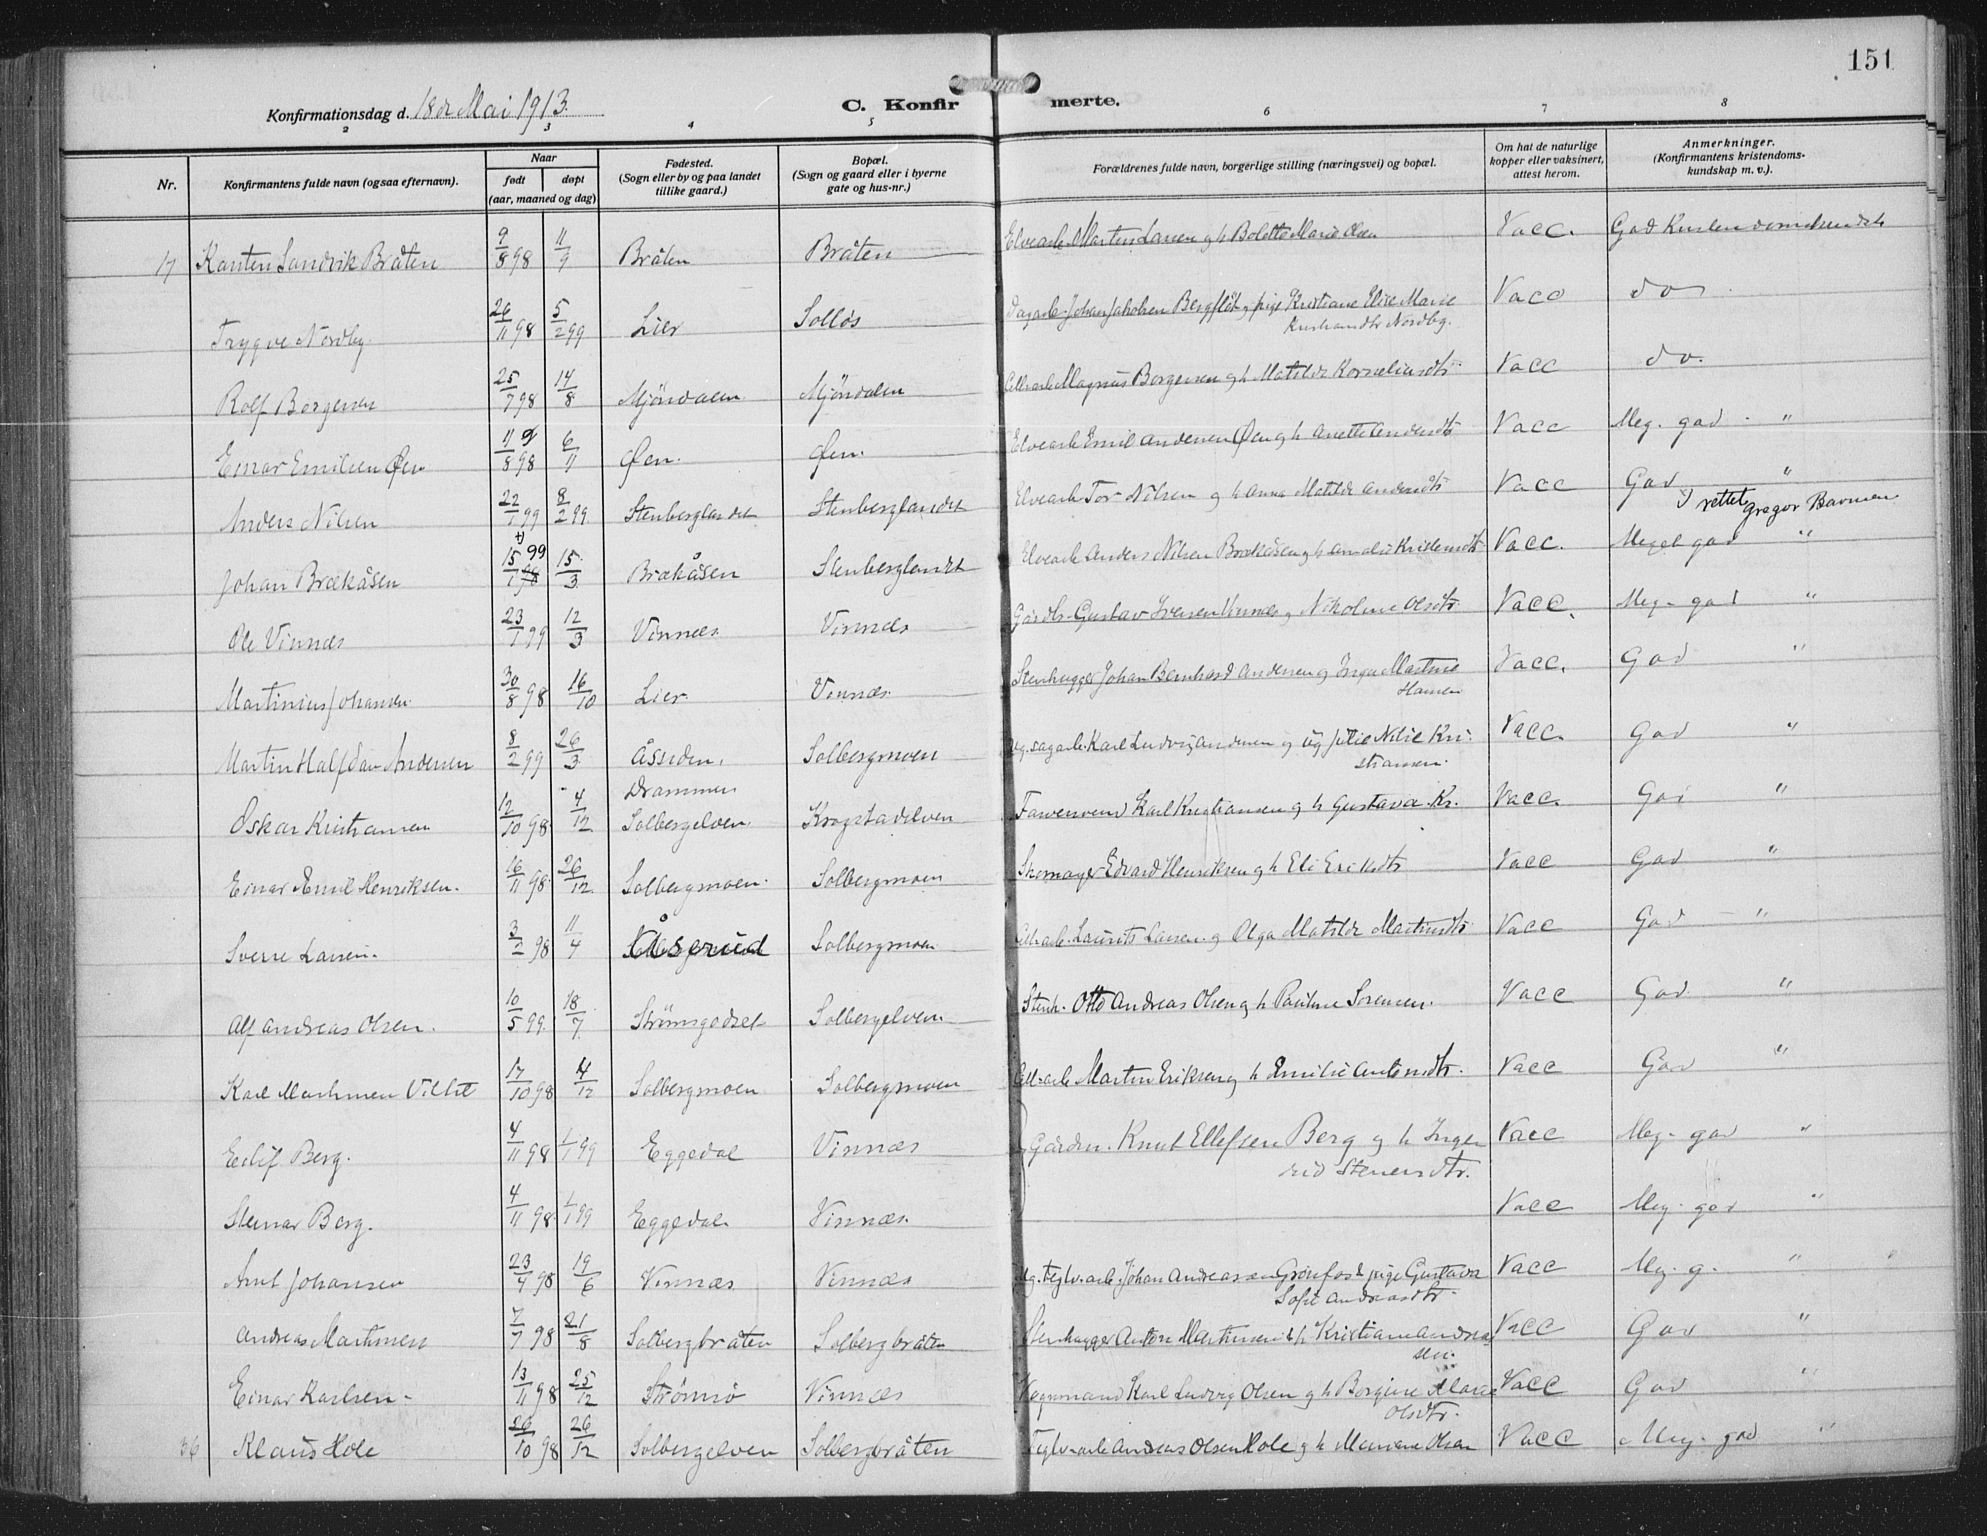 151
Konfirmationsdag d. 18de Mai 1913.
C. Konfir merte.
2 3 4 5 6 7 8
Nr.
Konfirmantens fulde navn (ogsaa efternavn).
Naar
født
døpt
(aar, maaned og dag)
Fødested.
(Sogn eller by og paa landet
tillike gaard.)
Bopæl.
(Sogn og gaard eller i byerne
gate og hus-nr.)
Forældrenes fulde navn, borgerlige stilling (næringsvei) og bopæl.
Om hat de naturlige
kopper eller vaksinert,
attest herom.
Anmerkninger.
(Konfirmantens kristendoms-
kundskap m. v.).
17 Karsten Sandvik Bråten 9/8 98 11/9 Bråten Bråten Elvearb. Martin Larsen og h Bolette Marie Olsen Vacc. God
Trygve Nordby 26/11 98 5/2 99 Lier Solløs Dagarb. Johan Jakobsen Bergflöt og pige Kristiane Elise Marie Vacc do
Nordby.
Rolf Borgersen 25/7 98 14/8 Mjöndalen Mjöndalen Cell-arb Magnus Borgersen og h Matilde Korneliusdtr Vacc do.
Einar Emilsen Øen 11/8 98 6/11 Øen. Øen. Elvearb Emil Andersen Øen og h Anette Andersdtr Vacc Meg. god "
Anders Nilsen 22/1 99 8/2 99 Stenberglandet Stenberglandet Elvearb Tor Nilsen og h Anna Matilde Andersdtr Vacc God "
rettet Gregor Bavmen
Johan Brækåsen 15/1 99 15/3 Brækåsen Stenberglandet Elvearb Anders Nilsen Brækåsen og h Amalie Kristensdtr Vacc. Meget god "
Ole Vinnæs 23/1 99 12/3 Vinnæs Vinnæs Gårdbr. Gustav Iversen Vinnæs og Nikoline Olsdtr Vacc. Meg. god "
Martinius Johansen 30/8 98 16/10 Lier Vinnæs. Stenhugger Johan Bernhard Andersen og Inga Martine Vacc. God "
Hansen
Martin Halfdan Andersen 8/2 99 26/3 Åssiden. Solbergmoen ug. sagarb. Karl Ludvig Andersen og ug pike Nilie Kri- Vacc. God "
stiansen.
Drammen
Oskar Kristiansen 12/10 98 4/12 Solbergelven Krogstadelven Farversvend Karl Kristiansen og h Gustava Kr. Vacc. God "
Einar Emil Henriksen. 16/11 98 26/12 Solbergmoen. Solbergmoen Skomager Edvard Henriksen og h Eli Eriksdtr Vacc God "
Sverre Larsen. 3/2 98 11/4 Åserud Solbergmoen Cell-arb. Laurits Larsen og Olga Matilde Martinsdtr Vacc God "
Alf Andreas Olsen. 10/5 99 18/7 Strömsgodset Solbergelven. Stenh. Otto Andreas Olsen og h Pauline Sorensen. Vacc God "
Karl Martinsen 17/10 98 4/12 Solbergmoen Solbergmoen Cell-arb Martin Eriksen og h Emilie Antonsdtr. Vacc God "
Eilif Berg. 4/11 98 1/1 99 Eggedal Vinnæs Gårdbr. Knut Ellefsen Berg og h Inge- Vacc Meg. god "
rid Stenersdtr.
Steinar Berg. 4/11 98 1/1 99 Eggedal Vinnæs. Vacc Meg. god "
Arnt Johansen 23/4 98 19/6 Vinnæs Vinnæs Ug. teglv.arb. Johan Andreassen Grönfos & pige Gustava Vacc Meg. g. "
Sofie Andreasdtr.
Andreas Martinsen 7/7 98 21/8 Solbergbråten Solbergbråten Stenhugger Anton Martinsen & h Kristian Andreas Vacc God "
sen.
Einar Karlsen 13/11 98 25/12 Strömsö Vinnæs Vognmand Karl Ludvig Olsen og h Borgine Marie Vacc God "
Olsdtr.
36 Klaus Hole 26/10 98 26/12 Solbergelven Solbergbråten Teglv-arb Andreas Olsen Hole og h Mariane Olsen Vacc Meg. god "